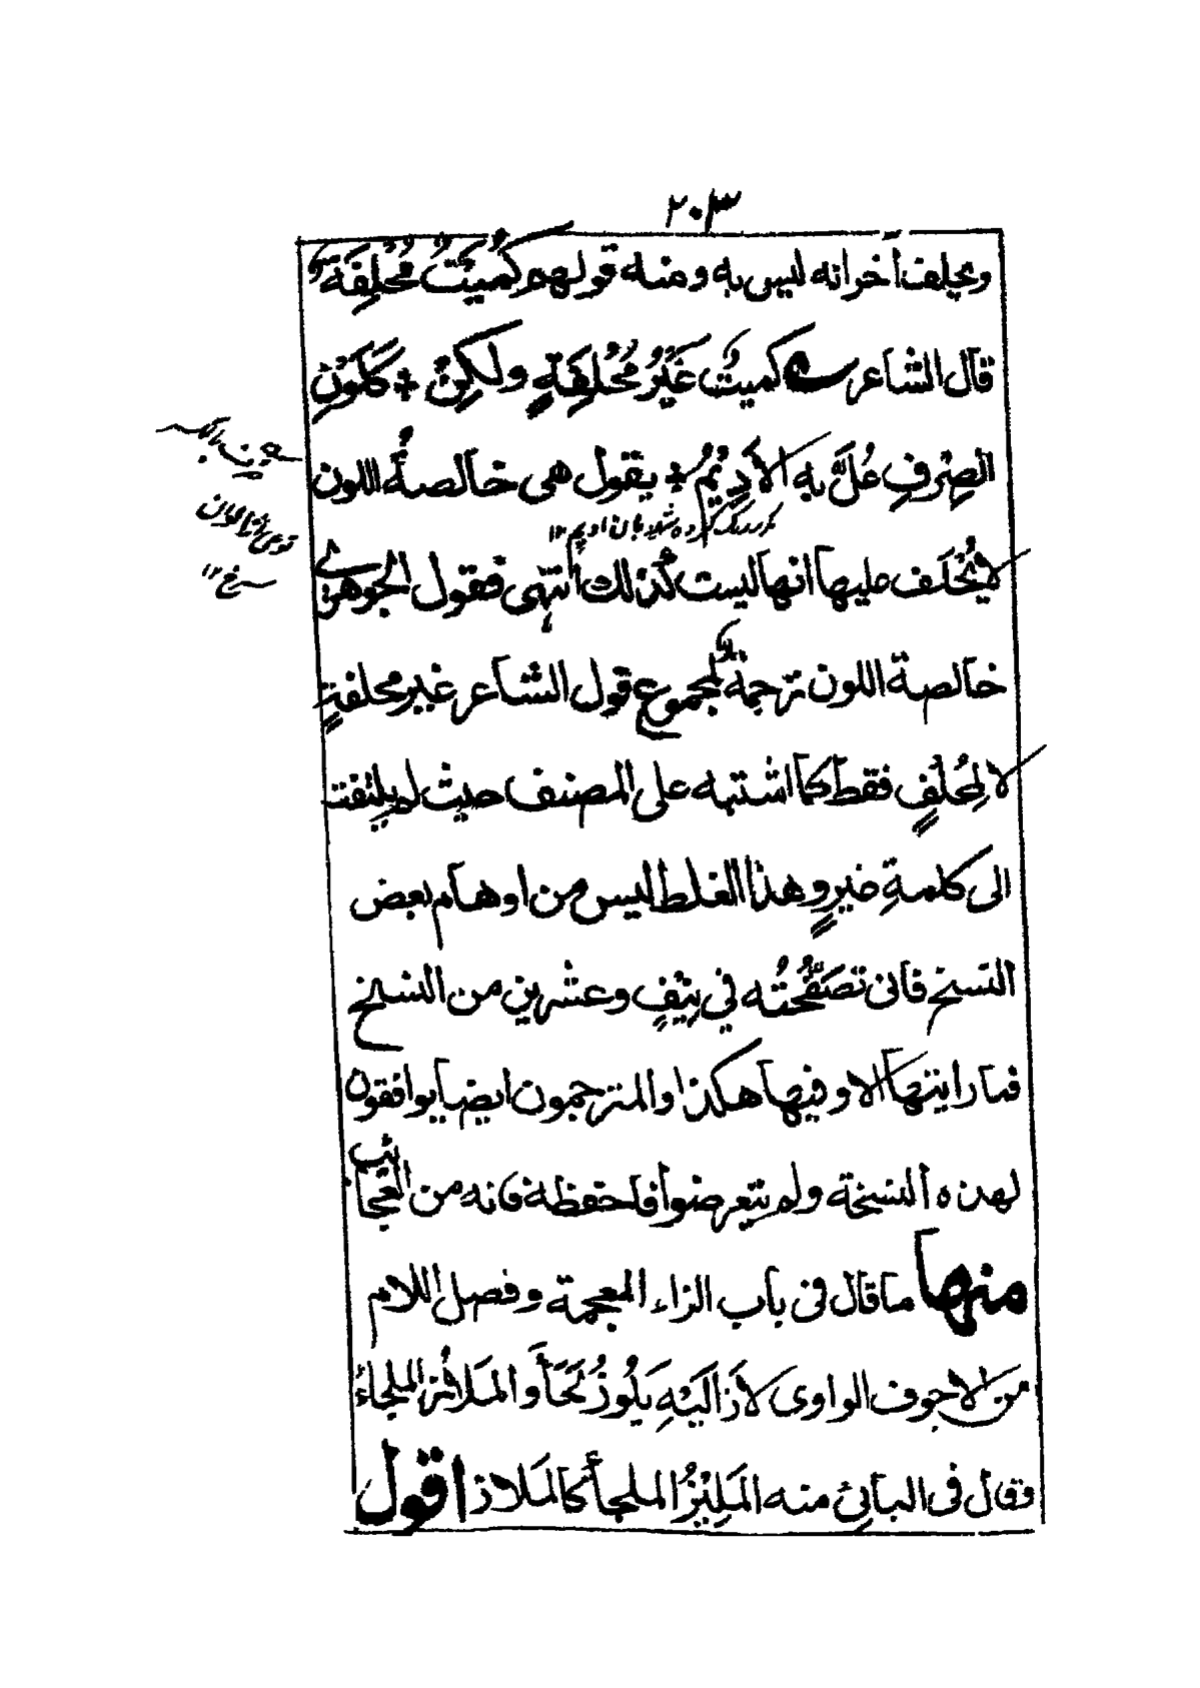 ٢٠٣
ويحلف آخر انه ليس به ومنه قولهم كُمَيْتٌ مُحْلِفَةٌ
قال الشاعر كميتٌ غَيْرُ مُحْلِفَةٍ ولكِنْ ٭ كَلَوْنِ
الصِرْفِ عُلَّ بِهِ الأَدِيْمُ ٭ يقول هى خالصةُ اللون
لا يُحْلَف عليها انها ليست كذلك انتهى فقول الجوهرى
خالصة اللون ترجمة لمجموع قول الشاعر غير محلفةٍ
لا لمُحْلِفٍ فقط كما اشتبه على المصنف حيث لم يلتفت
الى كلمةِ غيرٍ وهذا الغلط ليس من اوهام بعض
النسخ فانى تصَفَّحْتُه في نِيْفٍ وعشرين من النسخ
فما رايتها الا وفيها هكذا والمترجمون ايضا يوافقون
لهذه النسخة ولم يتعرضوا فاحفظه فانه من العجائب
منها ما قال فى باب الزاء المعجمة وفصل اللام
من الاجوف الواوى لاَزَ اِلَيْهِ يَلُوْزُ لَجَأَ والمَلاَزُ الملجاءُ
فقال فى اليائى منه المَلِيْزُ الملجأ كالمَلاز اقول
صرف بالكسر
سرخ ١٢